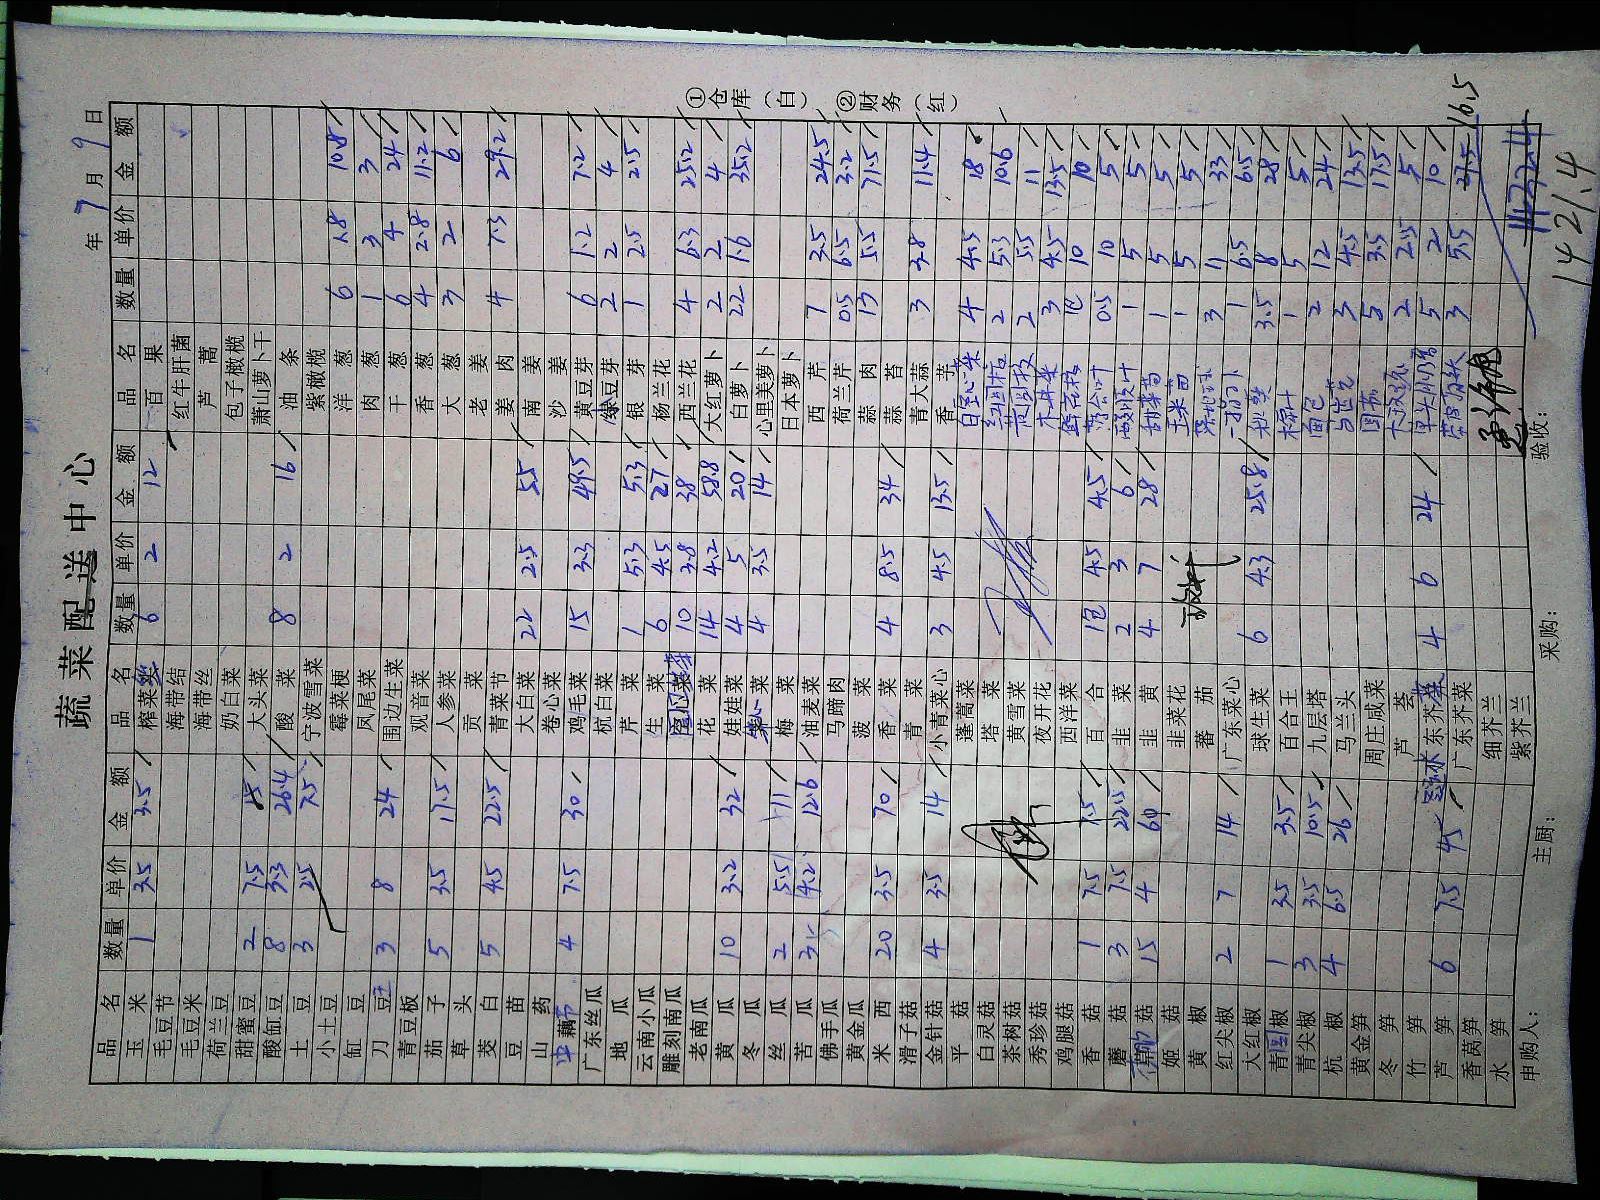 蔬菜配送中心
年 7 月 9 日
品名 数量 单价 金额 品名 数量 单价 金额 品名 数量 单价 金额
玉米 1 3.5 3.5 榨菜丝 6 2 12 百果
毛豆节 海带结 红牛肝菌
毛豆米 海带丝 芦蒿
荷兰豆 奶白菜 包子橄榄
甜蜜豆 2 7.5 15 大头菜 萧山萝卜干
酸缸豆 8 3.3 26.4 酸菜 8 2 16 油条
土豆 3 2.5 7.5 宁波雪菜 紫橄榄
小土豆 霉菜梗 洋葱 6 1.8 10.8
缸豆 凤尾菜 肉葱 1 3 3
刀豆 3 8 24 围边生菜 干葱 6 4 24
青豆板 观音菜 香葱 4 2.8 11.2
茄子 5 3.5 17.5 人参菜 大葱 3 2 6
草头 贡菜 老姜
茭白 5 4.5 22.5 青菜节 姜肉 4 7.3 29.2
豆苗 大白菜 22 2.5 55 南姜
山药 卷心菜 沙姜
藕节 4 7.5 30 鸡毛菜 15 3.3 49.5 黄豆芽 6 1.2 7.2
广东丝瓜 杭白菜 绿豆芽 2 2 4
地瓜 芹菜 1 5.3 5.3 银芽 1 2.5 2.5
云南小瓜 生菜 6 4.5 27 杨兰花
雕刻南瓜 心菜 10 3.8 38 西兰花 4 6.3 25.2
老南瓜 花菜 14 4.2 58.8 大红萝卜 2 2 4
黄瓜 10 3.2 32 娃娃菜 4 5 20 白萝卜 22 1.6 35.2
冬瓜 菜 4 3.5 14 心里美萝卜
丝瓜 2 5.5 11 梅菜 日本萝卜
苦瓜 3 4.2 12.6 油麦菜 西芹 7 3.5 24.5
佛手瓜 马蹄肉 荷兰芹 0.5 6.5 3.2
黄金瓜 菠菜 蒜肉 13 5.5 71.5
米西 20 3.5 70 香菜 4 8.5 34 蒜苔
滑子菇 青菜 青大蒜 3 3.8 11.4
金针菇 4 3.5 14 小青菜心 3 4.5 13.5 香芋
平菇 蓬蒿菜 白空心菜 4 4.5 18
白灵菇 塔菜 红圆椒 2 5.3 10.6
茶树菇 黄雪菜 黄圆椒 2 5.5 11
秀珍菇 夜开花 木耳菜 3 4.5 13.5
鸡腿菇 西洋菜 1包 10 10
香菇 1 7.5 7.5 百合 1包 4.5 4.5 0.5 10 5
蘑菇 3 7.5 22.5 韭菜 2 3 6 1 5 5
草菇 15 4 60 韭黄 4 7 28 1 5 5
姬菇 韭菜花 玉米苗 1 5 5
黄椒 蕃茄 3 11 33
红尖椒 2 7 14 广东菜心 1 6.5 6.5
大红椒 球生菜 6 4.3 25.8 秋葵 3.5 8 28
青圆椒 1 3.5 3.5 百合王 1 5 5
青尖椒 3 3.5 10.5 九层塔 面包 2 12 24
杭椒 4 6.5 26 马兰头 3 4.5 13.5
黄金笋 周庄咸菜 5 3.5 17.5
冬笋 芦荟 2 2.5 5
竹笋 东芥菜 4 6 24 5 2 10
芦笋 6 7.5 45 广东芥菜 3 5.5 16.5
香莴笋 细芥兰
水笋 紫芥兰
1421.4
申购人： 主厨： 采购： 验收：
①仓库（白） ②财务（红）